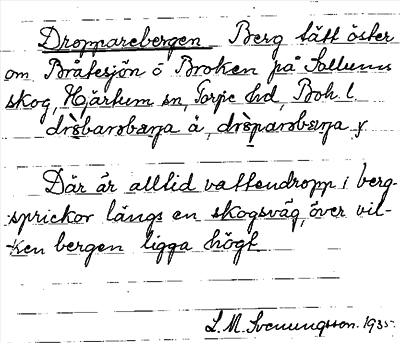 Dropparebergen Berg tätt öster
om Bråtesjön o Broken på Sollums
skog, Hjärtum sn, Torpe hd, Boh. l.
Där är alltid vattendropp i berg-
sprickor längs en skogsväg, över vil-
ken bergen ligga högt.
L. M. Svenungsson. 1935.